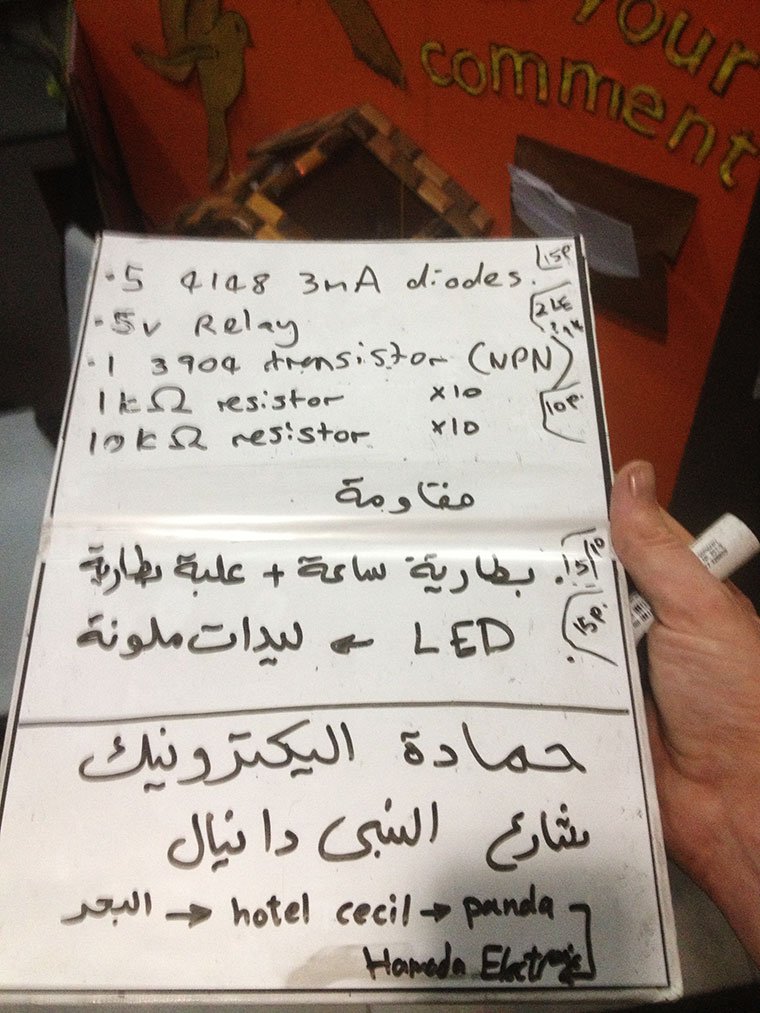 your
comment
·5 4148 3mA diodes. 15P
·5v Relay 2LE
·1 3904 transistor (NPN)
1kΩ resistor x10 10P.
10kΩ resistor x10
مقاومة
بطارية ساعة + علبة بطارية 15/10
LED ← ليدات ملونة 15P.
حمادة اليكترونيك
شارع النبى دانيال
البحر → hotel cecil → panda
Hamada Electronic